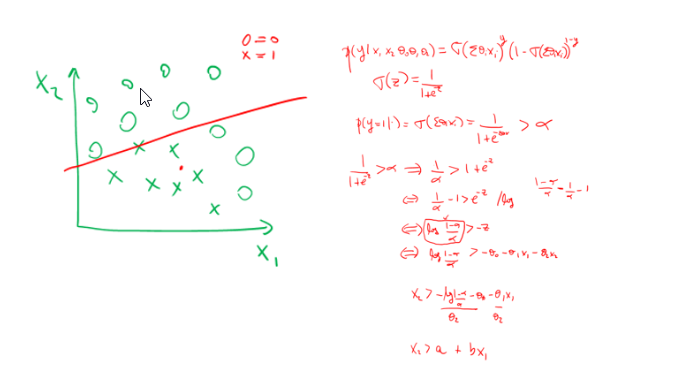 O = 0
X = 1
X₂
X₁
p(y|x₁ x₂ θ₀ θ₁ θ₂) = σ(Σθᵢxᵢ)^y (1 - σ(Σθᵢxᵢ))^1-y
σ(z) = 1/(1+e^-z)
p(y=1|·) = σ(Σθᵢxᵢ) = 1/(1+e^-Σθx) > α
1/(1+e^-z) > α ⇒ 1/α > 1+e^-z
⇔ 1/α - 1 > e^-z /log
(1-α)/α = 1/α - 1
⇔ log (1-α)/α > -z
⇔ log (1-α)/α > -θ₀ - θ₁x₁ - θ₂x₂
x₂ > (-log (1-α)/α - θ₀)/θ₂ - θ₁x₁/θ₂
x₂ > a + bx₁